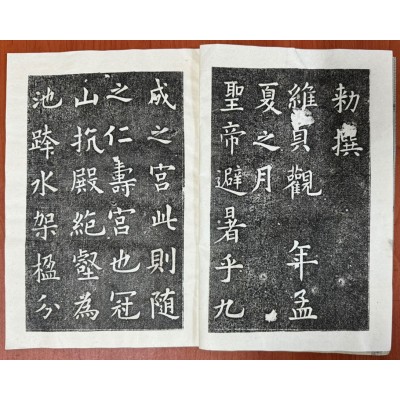 勑撰
維貞觀 年孟
夏之月
聖帝避暑乎九
成之宮此則随
之仁壽宮也冠
山抗殿絶壑為
池跨水架楹分